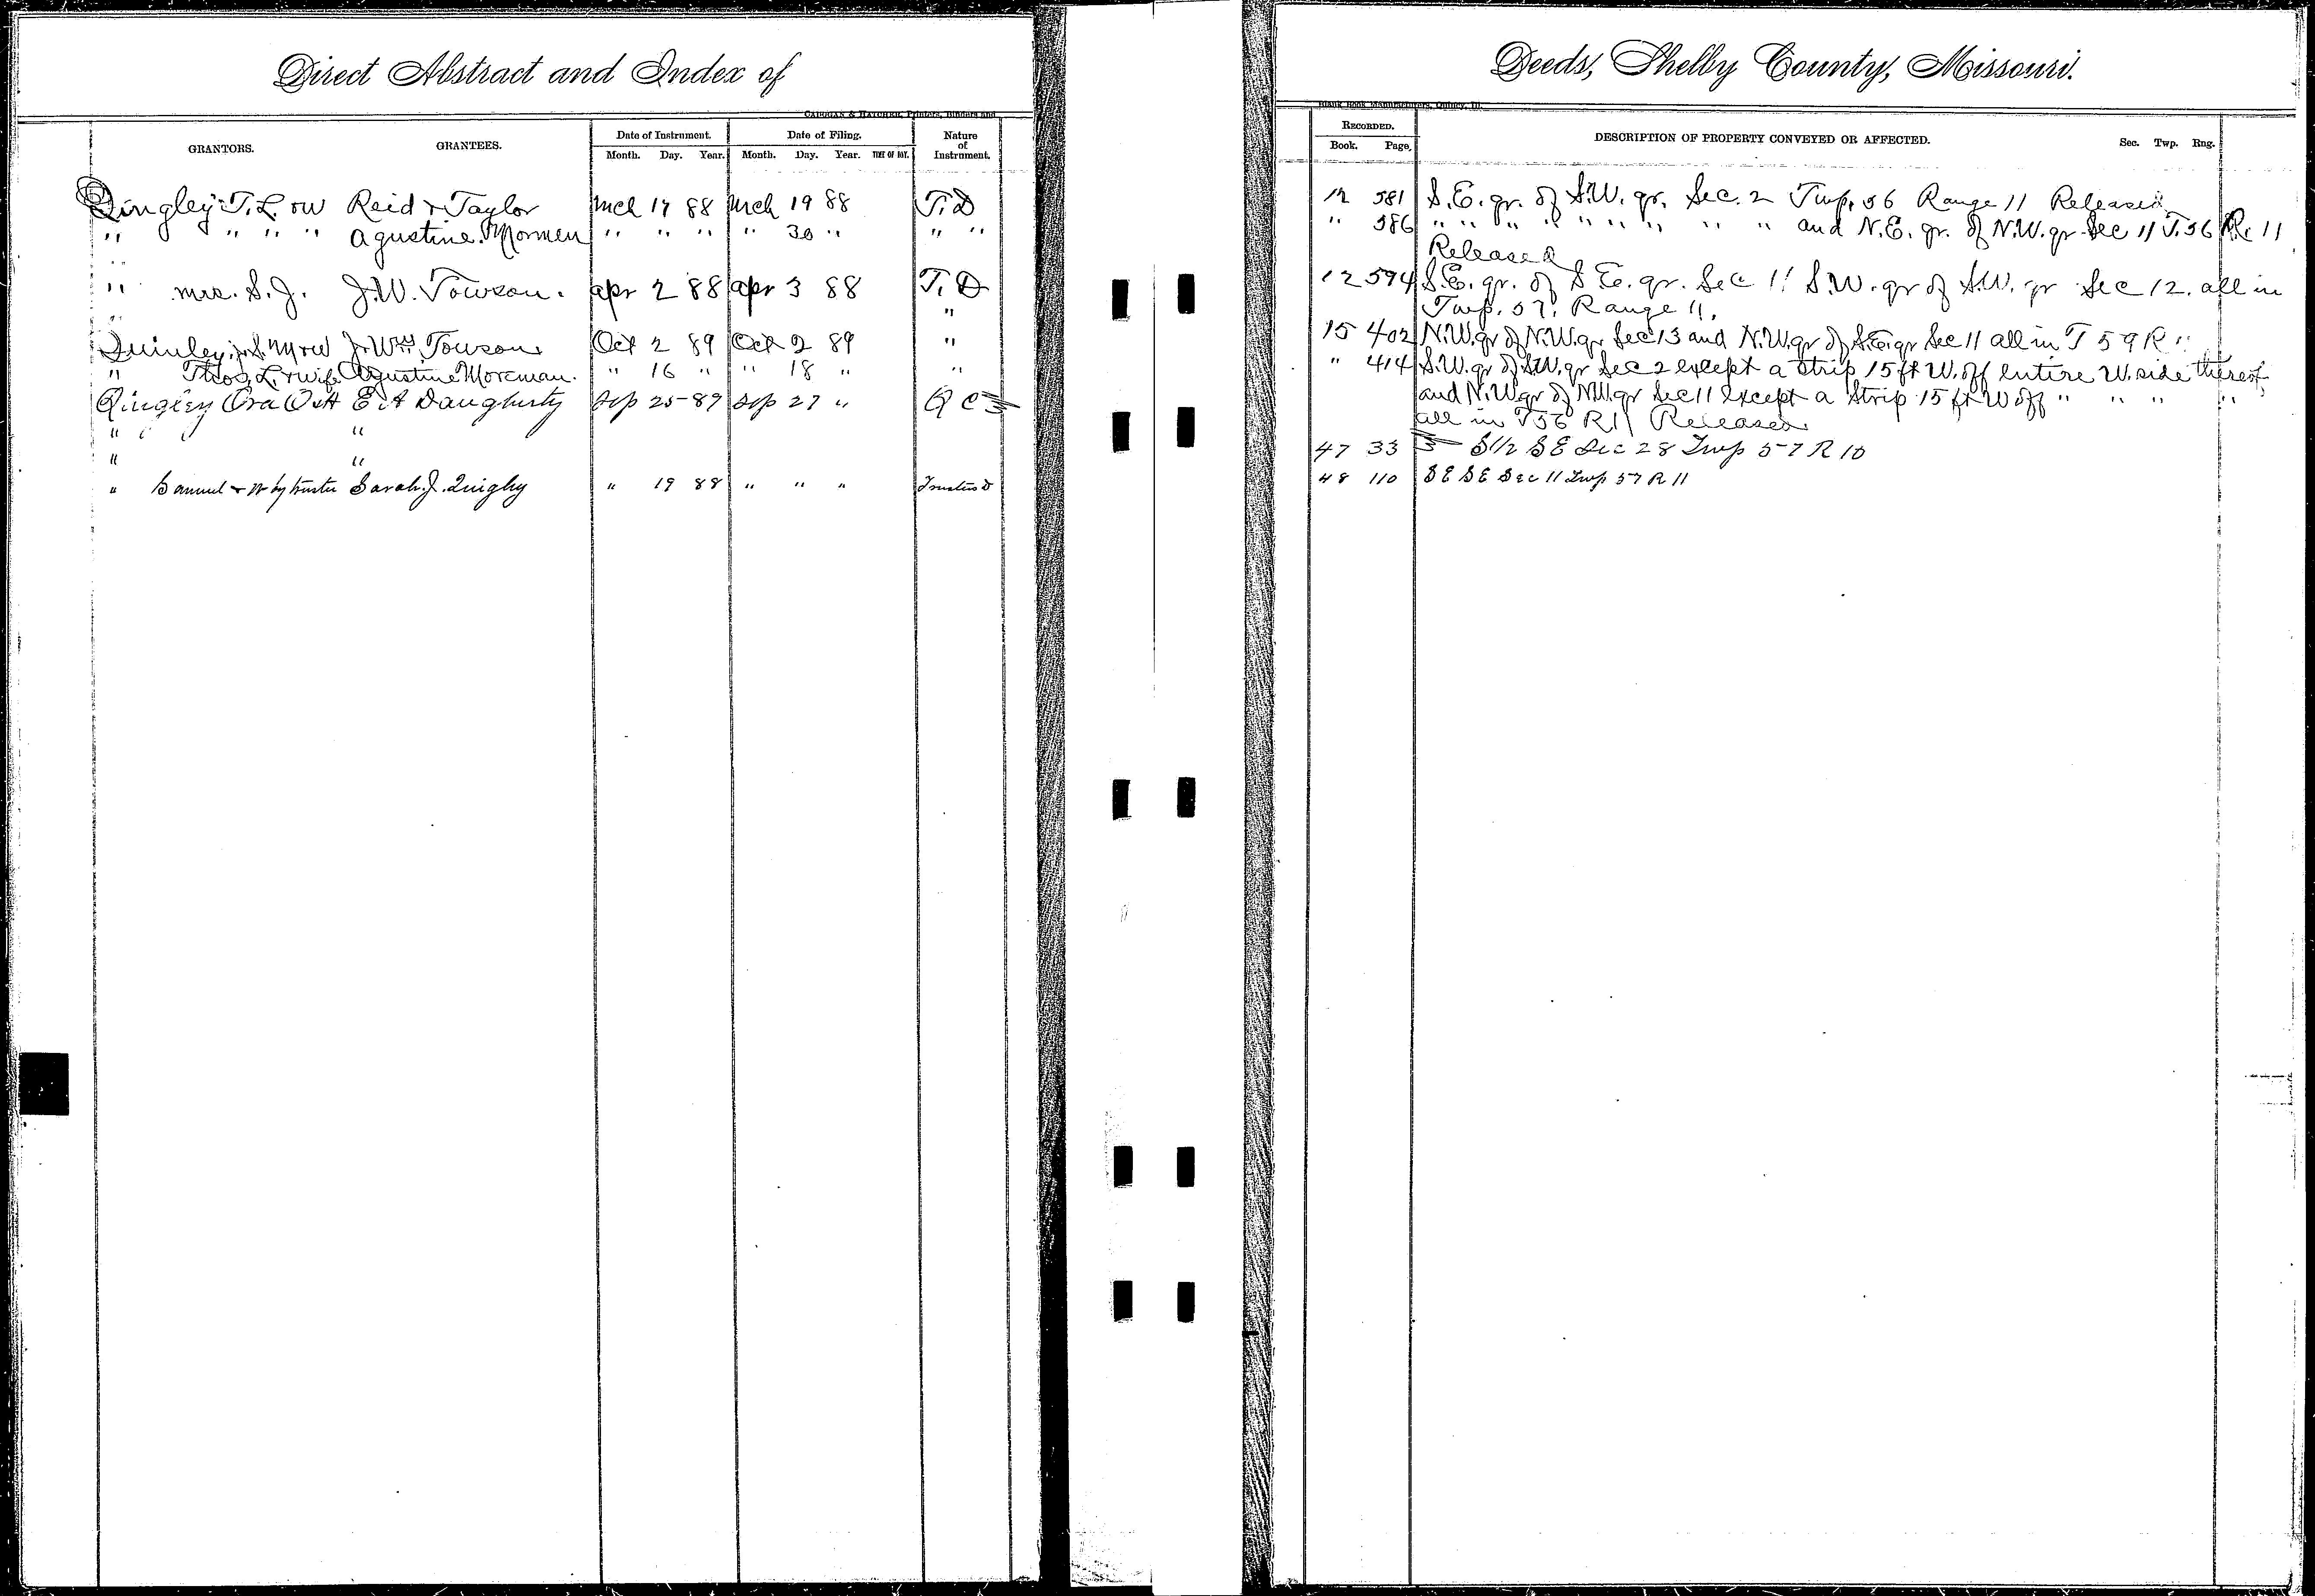 Direct Abstract and Index of
Deeds, Shelby County, Missouri.
CADOGAN & HATCHER, Printers, Binders and
Blank Book Manufacturers, Quincy, Ill.
GRANTORS. GRANTEES. Date of Instrument. Date of Filing. Nature of Instrument.
Month. Day. Year. Month. Day. Year. TIME OF DAY.
RECORDED. DESCRIPTION OF PROPERTY CONVEYED OR AFFECTED. Sec. Twp. Rng.
Book. Page.
Quigley T. L. ow Reid & Taylor Mch 17 88 Mch 19 88 T. D
" " " " Agustine Mormen " " " " 30 " " "
" Mrs. S. J. J. W. Towson. Apr 2 88 Apr 3 88 T. D
"
J. Wm Towson Oct 2 89 Oct 2 89 "
" Thos. L. & wife Agustine Moreman. " 16 " " 18 " "
Quigley Ora O et A E A Daugherty Sep 25 - 89 Sep 27 " Q C
" "
" "
" Samuel & W by trustee Sarah J. Quigley " 19 88 " " " Trustees D
12 581 S. E. qr. of S. W. qr. Sec. 2 Twp. 56 Range 11 Released
" 586 " " " " " " " " " and N. E. qr. of N. W. qr Sec 11 T. 56 R. 11
Released
12 594 S. E. qr. of S. E. qr. Sec 11 S. W. qr of S. W. qr Sec 12. all in
Twp. 57. Range 11.
15 402 N. W. qr of N. W. qr Sec 13 and N. W. qr of S. E. qr Sec 11 all in T 59 R "
" 414 S. W. qr of S. W. qr Sec 2 except a strip 15 ft W. off entire W. side thereof
and N. W qr of N W. qr Sec 11 except a Strip 15 ft W off " " " "
all in T 56 R 11 Released
47 33 S 1/2 S E Sec 28 Twp 57 R 10
48 110 S E S E Sec 11 Twp 57 R 11